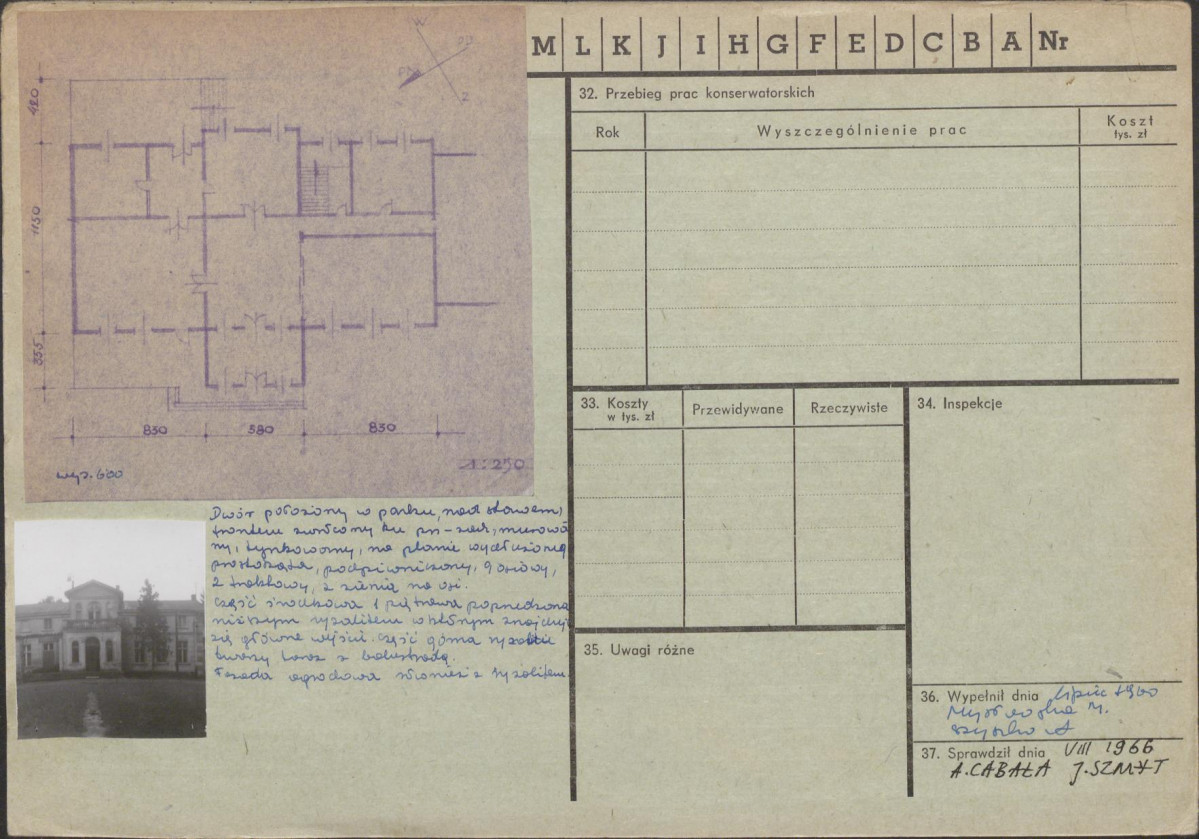 M L K J I H G F E D C B A Nr
W
Z
420
1150
355
830 580 830
wys. 600
1:250
Dwór położony w parku, nad stawem,
frontem zwrócony ku pn-zach, murowa
ny, tynkowany, na planie wydłużonego
prostokąta, podpiwniczony, 9 osiowy,
2 traktowy, z sienią na osi.
Część środkowa 1 piętrowa poprzedzona
niższym ryzalitem w którym znajduje
się główne wejście. Część górna ryzalitu
tworzy taras z balustradą.
Fasada ogrodowa również z ryzalitem
32. Przebieg prac konserwatorskich
Rok
Wyszczególnienie prac
Koszt
tys. zł
33. Koszty
w tys. zł
Przewidywane
Rzeczywiste
34. Inspekcje
35. Uwagi różne
36. Wypełnił dnia lipiec 1960
37. Sprawdził dnia VIII 1966
A. CABAŁA J. SZMYT